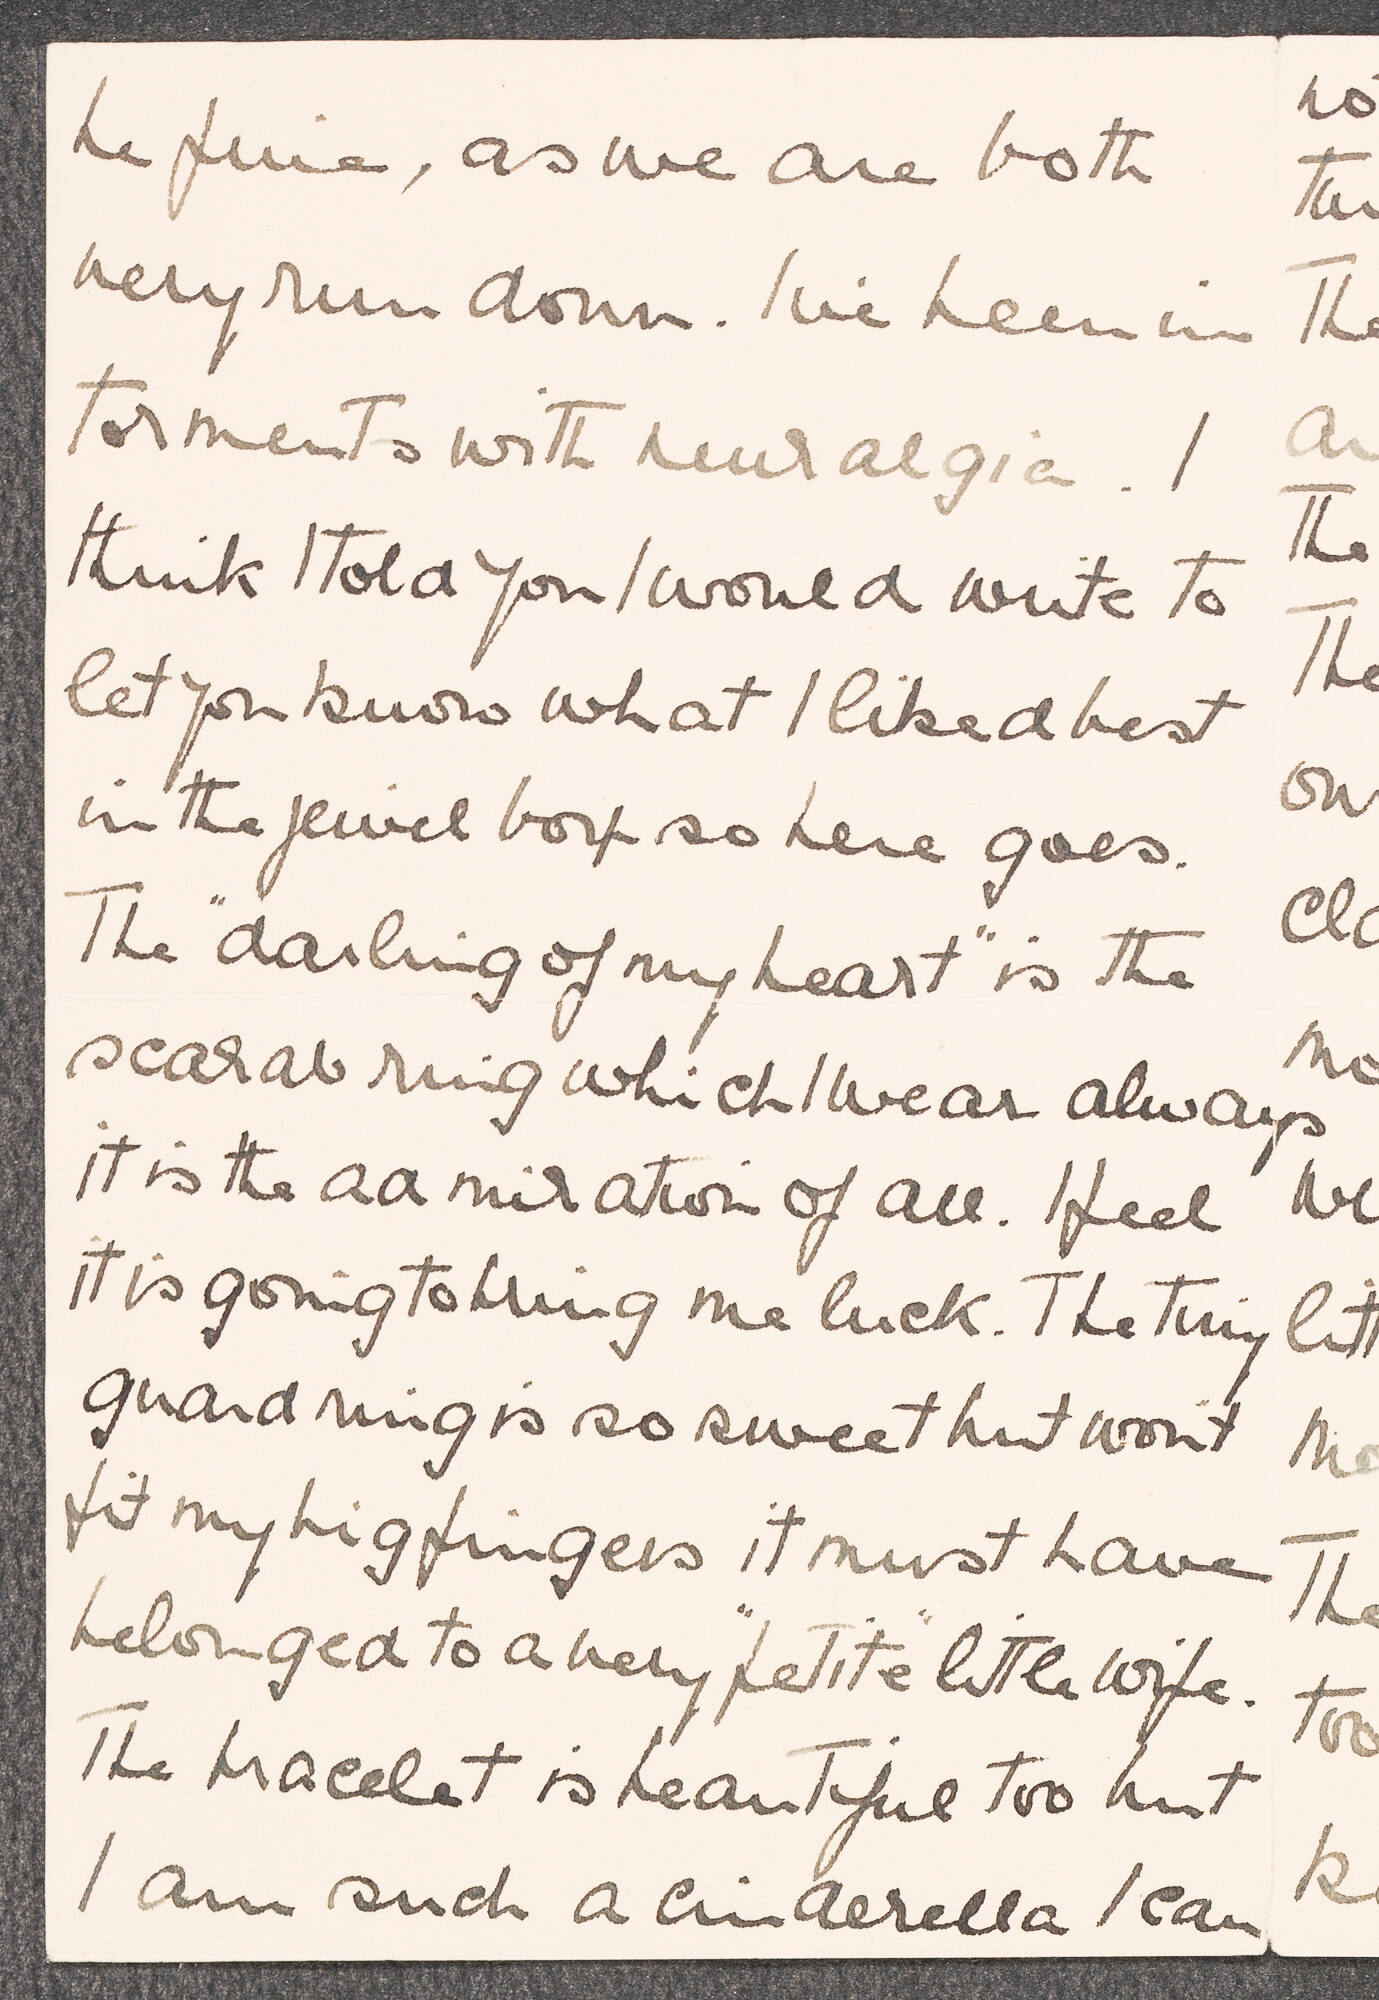 be fine, as we are both
very run down. I've been in
torments with neuralgia. I
think I told you I would write to
let you know what I liked best
in the jewel box so here goes.
The "darling of my heart" is the
scarab ring which I wear always
it is the admiration of all. I feel
it is going to bring me luck. The tiny
guard ring is so sweet but won't
fit my big fingers it must have
belonged to a very "petite" little wife.
The bracelet is beautiful too but
I am such a cinderella I can
The
The
The
The
too